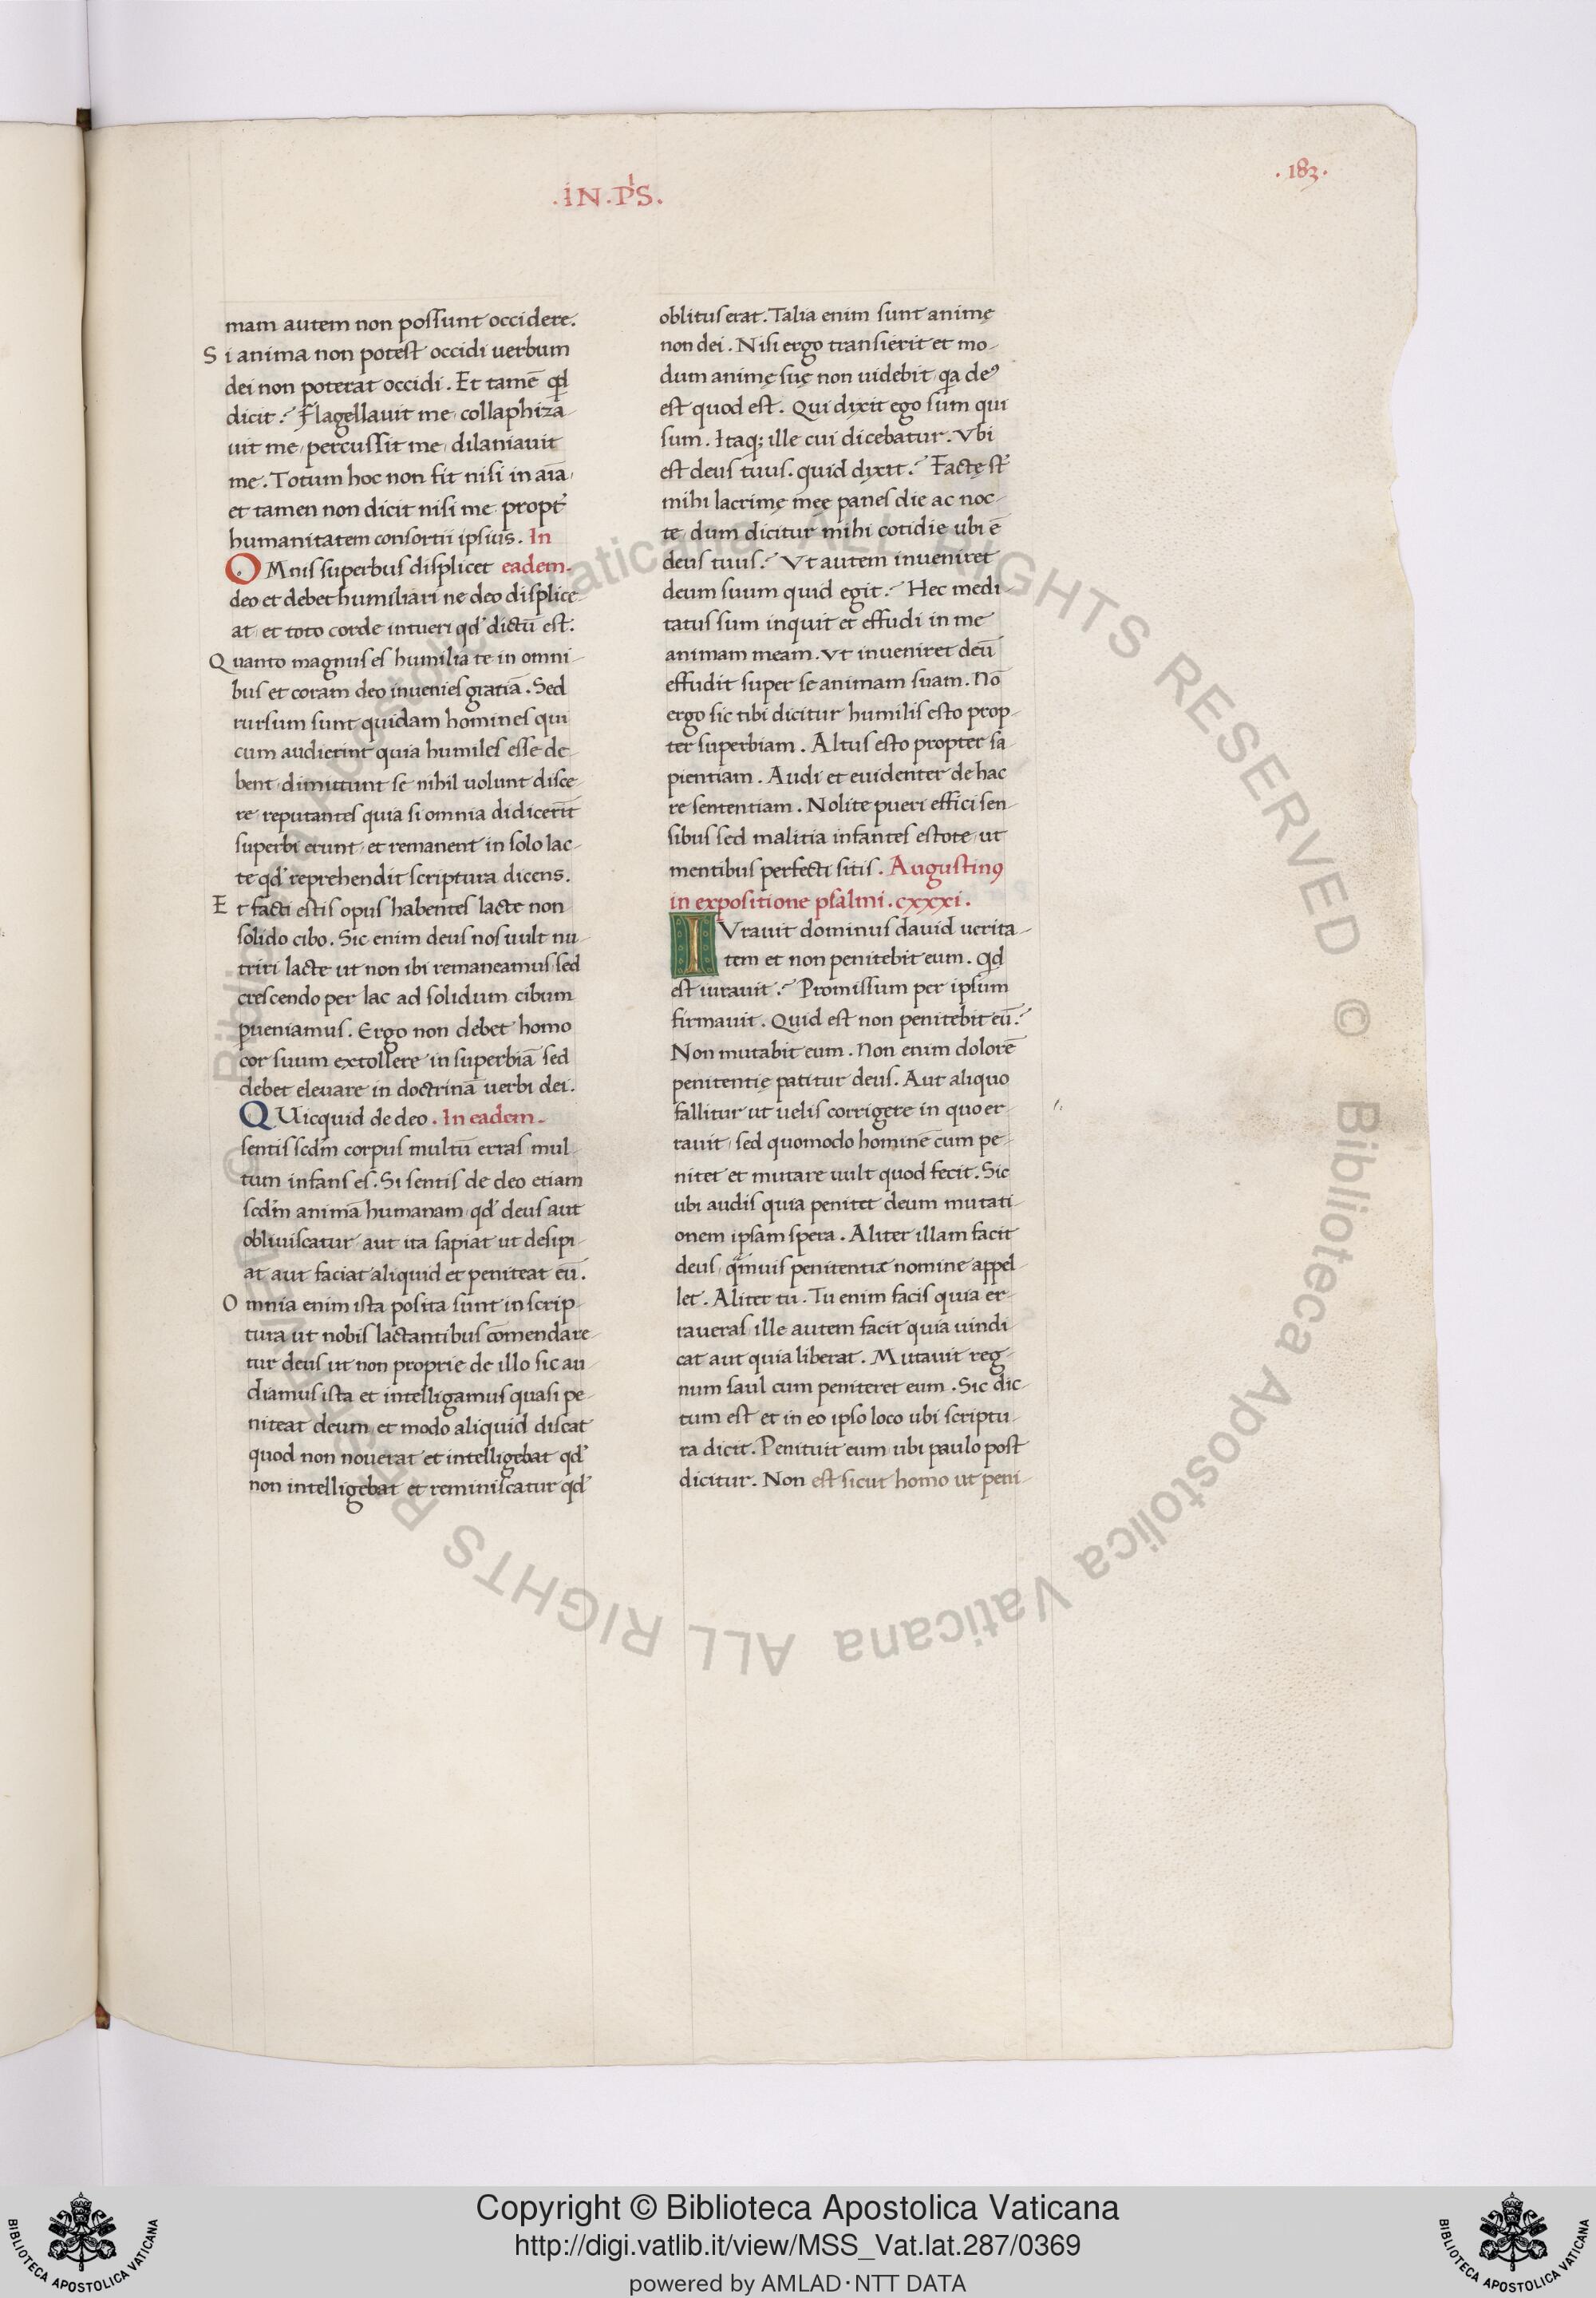 .iN.PˡS.
.183.
mam autem non possunt occidere.
Si anima non potest occidi uerbum
dei non poterat occidi. Et tamē qd
dicit? Flagellauit me, collaphiza
uit me, percussit me, dilaniauit
me. Totum hoc non fit nisi in aīa,
et tamen non dicit nisi me propt̄
humanitatem consortii ipsius. In
OMnis superbus displicet eadem.
deo et debet humiliari ne deo displice-
at, et toto corde intueri qd' dictū est.
Quanto magnus es humilia te in omni-
bus et coram deo inuenies gratiā. Sed
rursum sunt quidam homines qui
cum audierint quia humiles esse de-
bent, dimittunt se nihil uolunt disce-
re, reputantes quia si omnia didicerīt
superbi erunt, et remanent in solo lac-
te qd' reprehendit scriptura dicens.
Et facti estis opus habentes lacte non
solido cibo. Sic enim deus nos uult nu-
triri lacte ut non ibi remaneamus, sed
crescendo per lac ad solidum cibum
ꝑueniamus. Ergo non debet homo
cor suum extollere in superbiā sed
debet eleuare in doctrinā uerbi dei.
QUicquid de deo. In eadem.
sentis scdm̄ corpus multū erras, mul-
tum infans es. Si sentis de deo etiam
scdm̄ animā humanam, qd' deus aut
obliuiscatur, aut ita sapiat ut desipi-
at aut faciat aliquid et peniteat eū.
Omnia enim ista posita sunt in scrip-
tura ut nobis lactantibus cōmendare-
tur deus ut non proprie de illo sic au-
diamus ista et intelligamus quasi pe-
niteat deum et modo aliquid discat
quod non nouerat et intelligebat qd'
non intelligebat et reminiscatur qd'
oblitus erat. Talia enim sunt animę
non dei. Nisi ergo transierit et mo-
dum animę suę non uidebit, qa deꝰ
est quod est. Qui dixit ego sum qui
sum. Itaq; ille cui dicebatur. Vbi
est deus tuus. quid dixit? Factę st̄
mihi lacrimę meę panes die ac noc-
te, dum dicitur mihi cotidie ubi ē
deus tuus? Vt autem inueniret
deum suum quid egit? Hec medi-
tatus sum inquit et effudi in me
animam meam. Vt inueniret deū
effudit super se animam suam. Nō
ergo sic tibi dicitur humilis esto prop-
ter superbiam. Altus esto propter sa-
pientiam. Audi et euidenter de hac
re sententiam. Nolite pueri effici sen-
sibus sed malitia infantes estote, ut
mentibus perfecti sitis. Augustinꝰ
in expositione psalmi. cxxxi.
IVrauit dominus dauid uerita-
tem et non penitebit eum. Qd
est iurauit? Promissum per ipsum
firmauit. Quid est non penitebit eū?
Non mutabit eum. Non enim dolorē
penitentię patitur deus. Aut aliquo
fallitur ut uelis corrigere in quo er-
rauit, sed quomodo hominē cum pe-
nitet et mutare uult quod fecit. Sic
ubi audis quia penitet deum mutati-
onem ipsam spera. Aliter illam facit
deus, qmuis penitentiæ nomine appel-
let. Aliter tu. Tu enim facis quia er-
raueras, ille autem facit quia uindi-
cat aut quia liberat. Mutauit reg-
num saul cum peniteret eum. Sic dic-
tum est et in eo ipso loco ubi scriptu-
ra dicit. Penituit eum, ubi paulo post
dicitur. Non est sicut homo ut peni-
© Biblioteca Apostolica Vaticana ALL RIGHTS RESERVED © Biblioteca Apostolica Vaticana ALL RIGHTS RESERVED
Copyright © Biblioteca Apostolica Vaticana
http://digi.vatlib.it/view/MSS_Vat.lat.287/0369
powered by AMLAD·NTT DATA
BIBLIOTECA APOSTOLICA VATICANA
BIBLIOTECA APOSTOLICA VATICANA